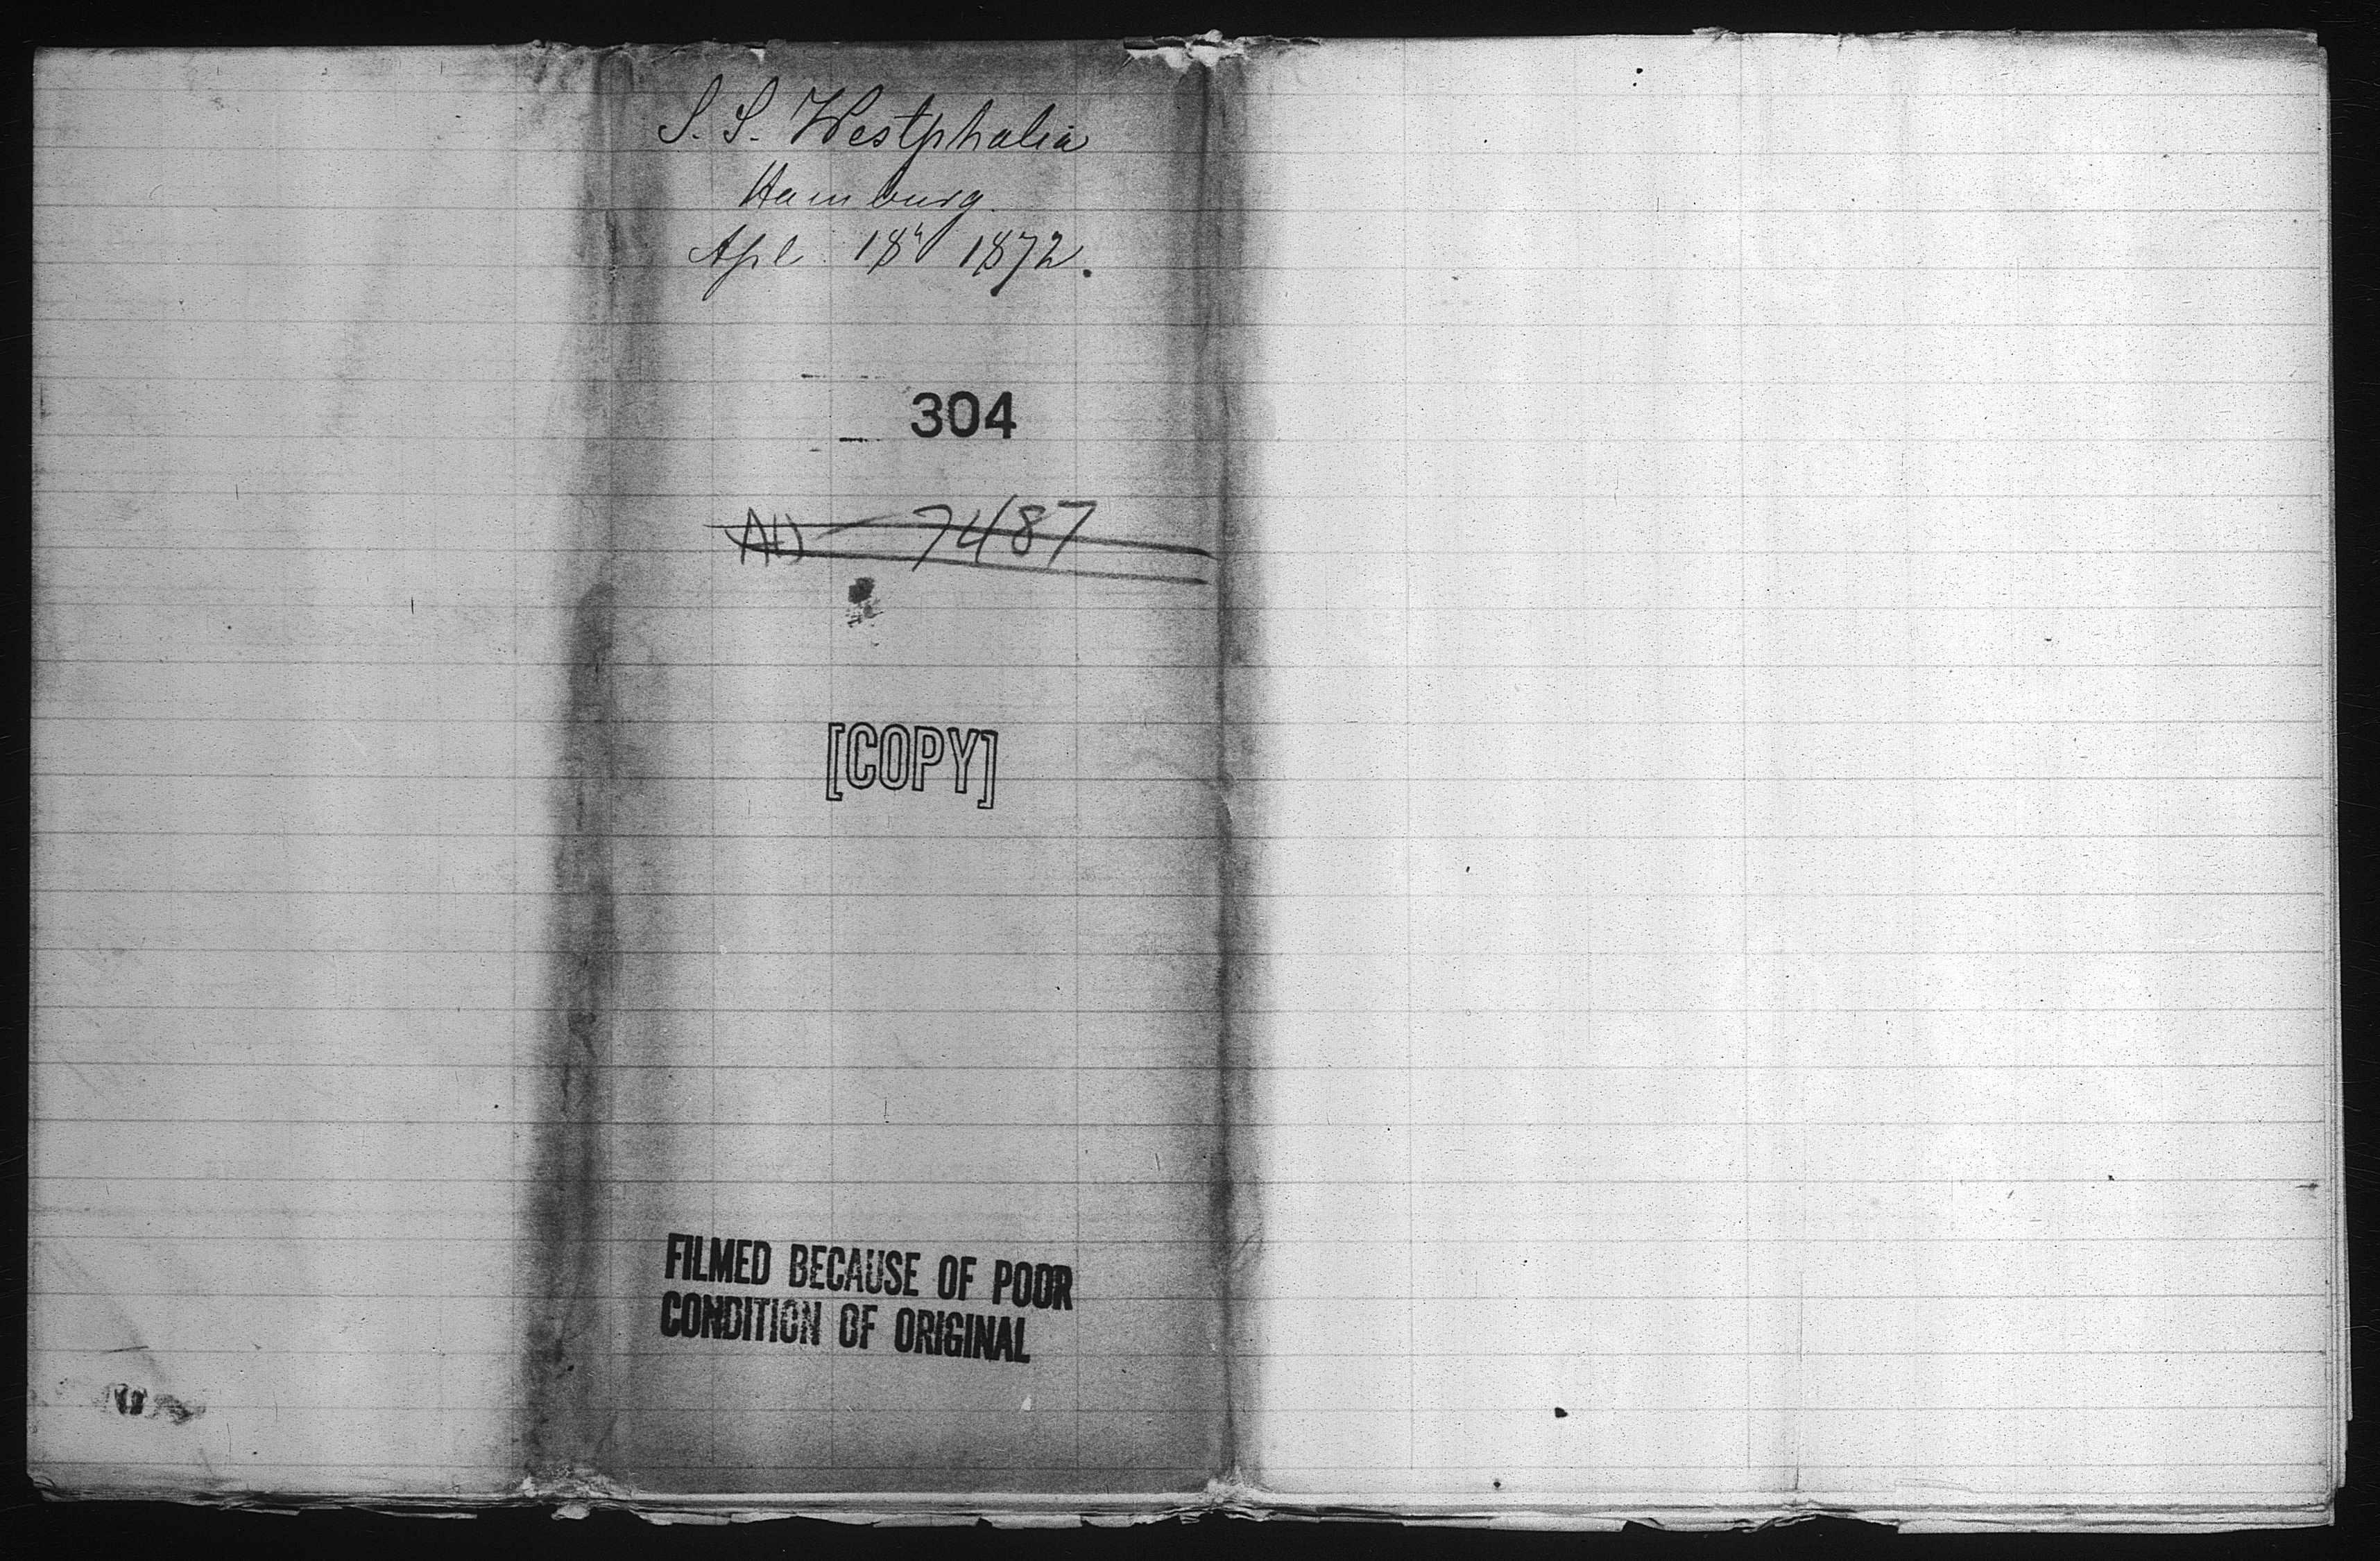 S. S. Westphalia
Hamburg
Apl. 18th 1872.
304
7487
[COPY]
FILMED BECAUSE OF POOR
CONDITION OF ORIGINAL